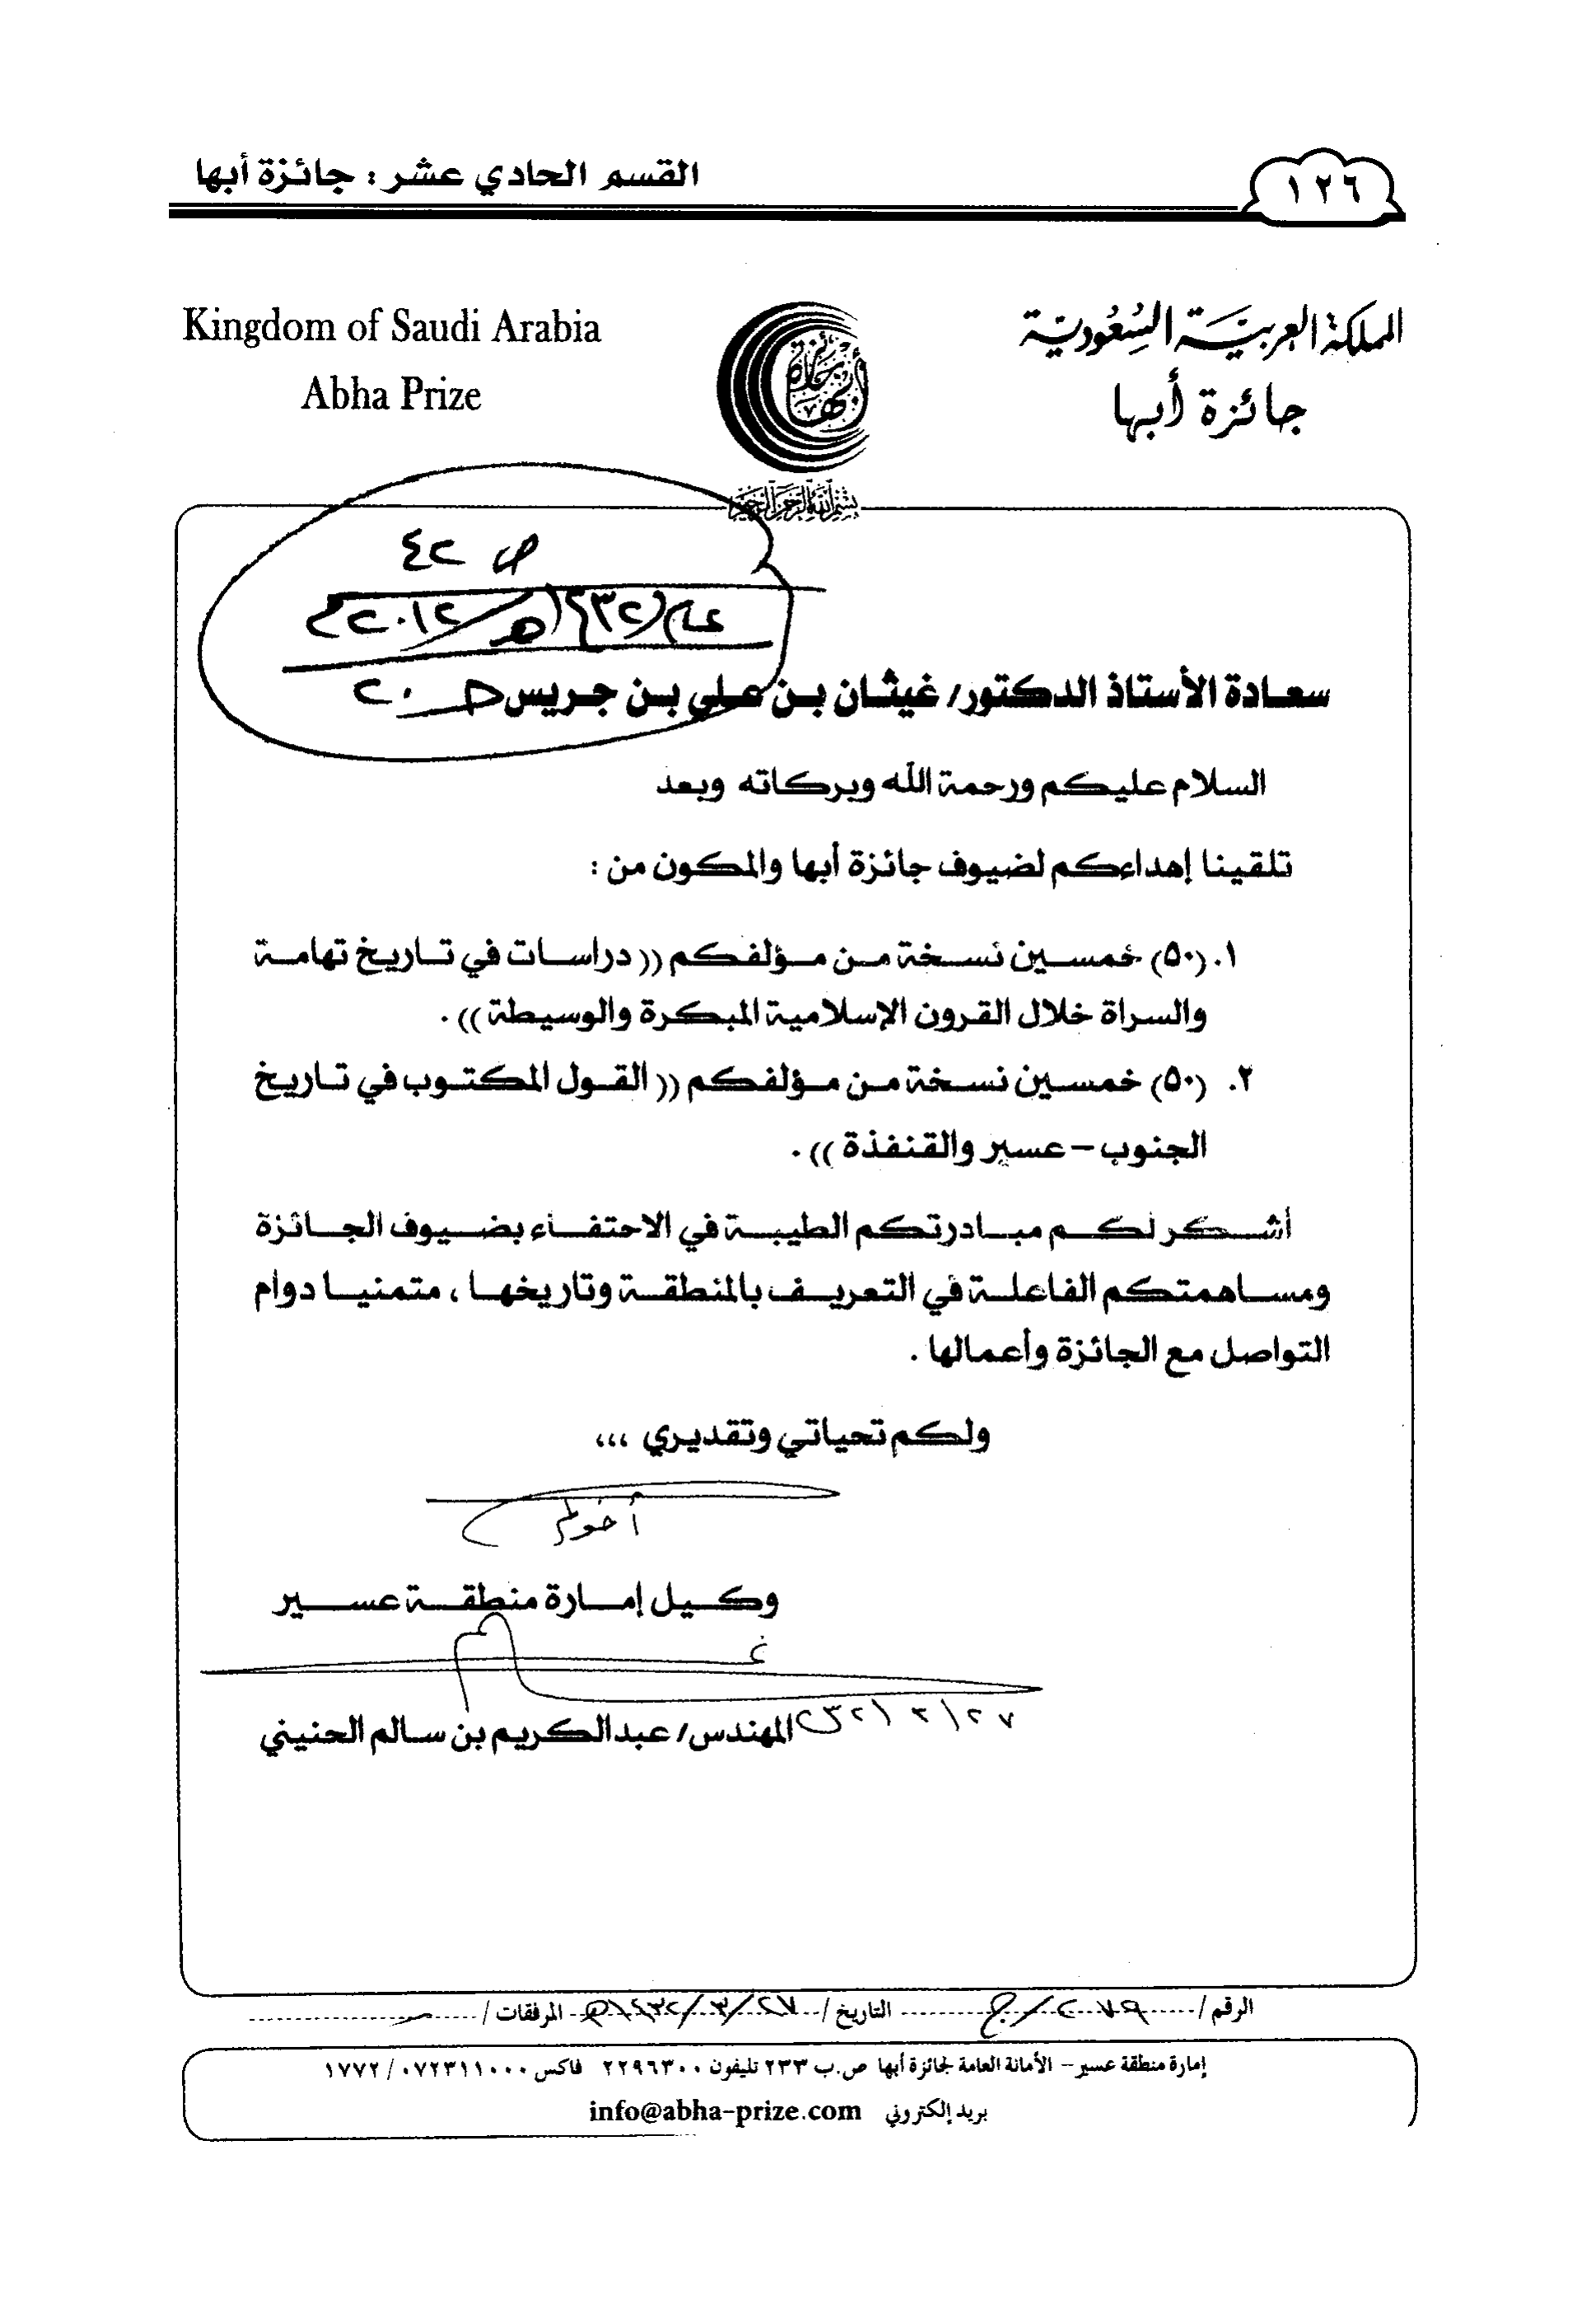 القسم الحادي عشر : جائزة أبها
١٢٦
المملكة العربية السعودية
جائزة أبها
Kingdom of Saudi Arabia
Abha Prize
جائزة أبها
بسم الله الرحمن الرحيم
ص ٤٢
سعادة الأستاذ الدكتور/ غيثان بن علي بن جريس
السلام عليكم ورحمة الله وبركاته وبعد
تلقينا إهداءكم لضيوف جائزة أبها والمكون من :
١. (٥٠) خمسين نسخة من مؤلفكم (( دراسات في تاريخ تهامة
والسراة خلال القرون الإسلامية المبكرة والوسيطة )) .
٢. (٥٠) خمسين نسخة من مؤلفكم (( القول المكتوب في تاريخ
الجنوب – عسير والقنفذة )) .
أشكر لكم مبادرتكم الطيبة في الاحتفاء بضيوف الجائزة
ومساهمتكم الفاعلة في التعريف بالمنطقة وتاريخها ، متمنيا دوام
التواصل مع الجائزة وأعمالها .
ولكم تحياتي وتقديري ،،،
أخوكم
وكيل إمارة منطقة عسير
المهندس/ عبدالكريم بن سالم الحنيني
الرقم / ٢٠٧٩/ج التاريخ / ٢٧/٣/١٤٣٢هـ المرفقات /
إمارة منطقة عسير – الأمانة العامة لجائزة أبها ص.ب ٢٣٣ تليفون ٢٢٩٦٣٠٠ فاكس ٠٧٢٣١١٠٠٠ / ١٧٧٢
بريد إلكتروني info@abha-prize.com